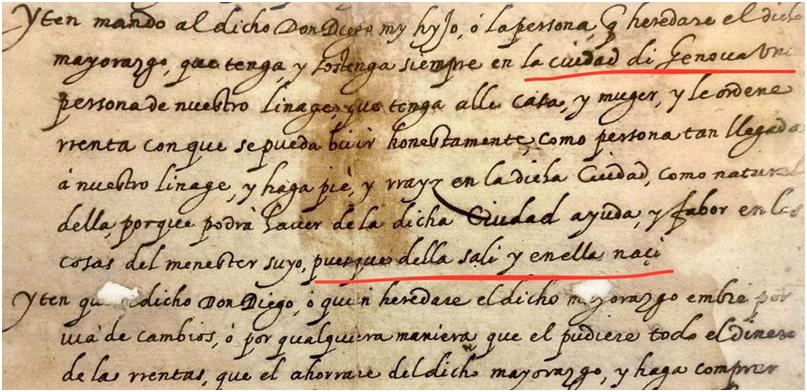 Yten mando al dicho Don Diego my hyjo, ó la persona, q̃ heredare el dicho
mayorazgo, que tenga, y sostenga siempre en la ciudad di Genova una
persona de nuestro linage, que tenga alli casa, y muger, y le ordene
rrenta con que se pueda biuir honestamente, como persona tan llegada
á nuestro linage, y haga piè, y rrayz en la dicha Ciudad, como natural
della, porque podrà haver de la dicha Ciudad ayuda, y fabor en las
cosas del menester suyo, puesque della salì y en ella naçi
Yten que dicho Don Diego, ó quien heredare el dicho mayorazgo embie por
uiá de cambios, ó por qualquiera maniera que el pudiere todo el dinero
de las rrentas, que el ahorrare del dicho mayorazgo, y haga comprar